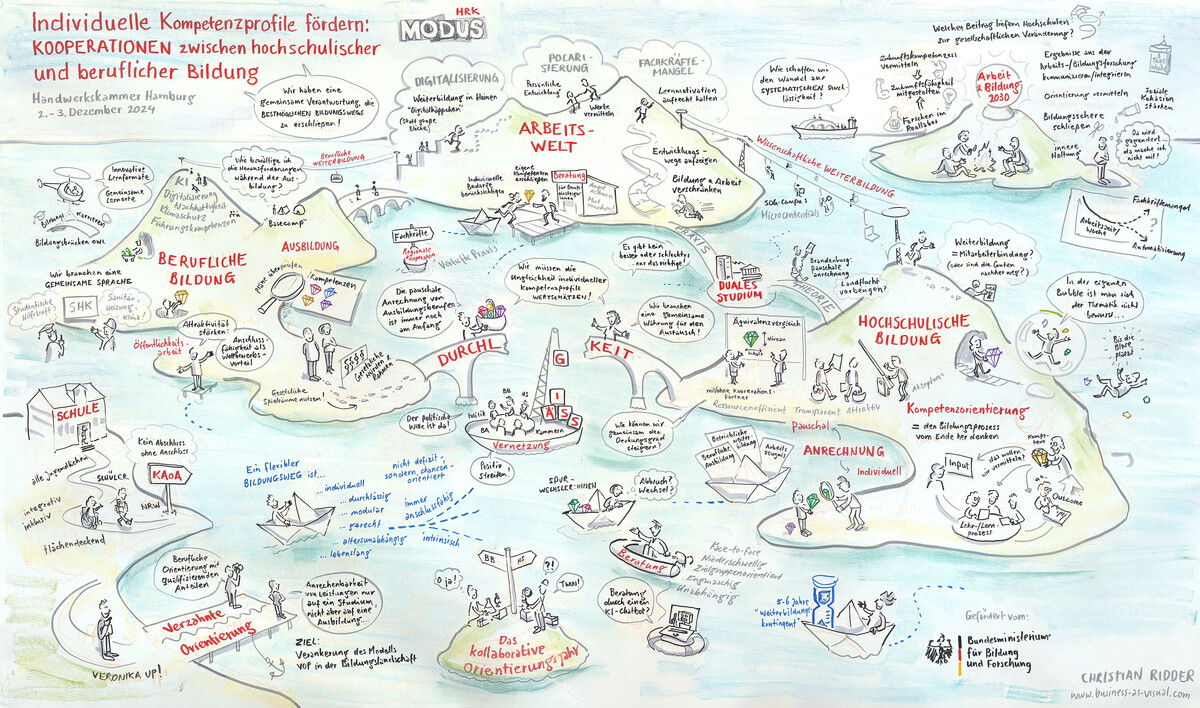 Individuelle Kompetenzprofile fördern:
KOOPERATIONEN zwischen hochschulischer
und beruflicher Bildung
Handwerkskammer Hamburg
2. - 3. Dezember 2024
HRK
MODUS
Wir haben eine
gemeinsame Verantwortung, die
BESTMÖGLICHEN BILDUNGSWEGE
zu erschließen!
DIGITALISIERUNG
Weiterbildung in kleinen
"Digitalhäppchen"
(statt großer
Blöcke)
POLARI-
SIERUNG
Persönliche
Entwicklung
Werte
vermitteln
FACHKRÄFTE-
MANGEL
Lernmotivation
aufrecht halten
ARBEITS-
WELT
Entwicklungs-
wege aufzeigen
Bildung & Arbeit
verschränken
Individuelle
Bedarfe
berücksichtigen
eigene
Kompetenzen
einschätzen
Beratung
Angst
nehmen
Mut
machen!
Wie schaffen wir
den Wandel zur
SYSTEMATISCHEN Durch-
lässigkeit?
Welchen Beitrag liefern Hochschulen
zur gesellschaftlichen Veränderung?
Zukunftskompetenzen
vermitteln
Zukunftsfähigkeit
mitgestalten
Forschen im
Reallabor
Arbeit
& Bildung
2030
Ergebnisse aus der
Arbeits-/Bildungsforschung
kommunizieren/integrieren
Orientierung vermitteln
Bildungsschere
schließen
Soziale
Kohäsion
stärken
innere
Haltung
Da wird
gegendert,
da mache ich
nicht mit!
Wissenschaftliche WEITERBILDUNG
SDG-Campus
Microcredentials
Fachkräftemangel
Arbeitszeit/
Woche
?
Automatisierung
Innovative
Lernformate
Gemeinsame
Lernorte
Bildungs-
Karrieren
Bildungsbrücken OWL
Berufliche
WEITERBILDUNG
KI
Digitalisierung
Nachhaltigkeit
Klimaschutz
Führungskompetenzen
Wie bewältige ich
die Herausforderungen
während der Aus-
bildung?
"Basecamp"
AUSBILDUNG
BERUFLICHE
BILDUNG
Wir brauchen eine
GEMEINSAME SPRACHE
Studentische
Hilfskraft?
SHK
Sanitär
Heizung
Klima!
Öffentlichkeits-
arbeit
Attraktivität
stärken!
Anschluss-
fähigkeit als
Wettbewerbs-
vorteil
Pläne überprüfen
Kompetenzen
Gesetzliche
Spielräume nutzen!
Gesetzliche
Hürden &
Rahmen
Fachkräfte
Regionale
Kooperation
Vorteile Praxis
Die pauschale
Anrechnung von
Ausbildungsberufen
ist immer noch
am Anfang
Wir müssen die
Ungleichheit individueller
Kompetenzprofile
WERTSCHÄTZEN!
Es gibt kein
besser oder schlechter,
nur das richtige!
PRAXIS
THEORIE
DUALES
STUDIUM
Brandenburg:
pauschale
anrechnung
Landflucht
vorbeugen?
Weiterbildung
= Mitarbeiterbindung?
(oder sind die Guten
nachher weg?)
In der eigenen
Bubble ist man sich
der Thematik nicht
bewusst...
Bis die
Blase
platzt!
DURCHL
Ä
S
S
I
G
KEIT
Wir brauchen
eine gemeinsame
Währung für den
Austausch!
Äquivalenzvergleich
Niveau
Inhalt
mit/ohne Kooperations-
partner
Ressourceneffizient Transparent Attraktiv
Akzeptanz
HOCHSCHULISCHE
BILDUNG
Kompetenzorientierung
= den Bildungsprozess
vom Ende her denken
Pauschal
ANRECHNUNG
Individuell
Input
das wollen
wir vermitteln?
Kompetenz
Outcome
Lehr-/Lern-
prozess
Der politische
Wille ist da!
Politik
BB
HS
BA
Kammern
Vernetzung
Positiv
streiten!
Wie können wir
gemeinsam den
Deckungsgrad
steigern?
Betriebliche
Weiterbildung
Berufliche
Ausbildung
Arbeits-
zeugnis
SCHULE
alle Jugendlichen
SCHÜLER
integrativ
inklusiv
flächendeckend
Kein Abschluss
ohne Anschluss
KAoA
NRW
Ein flexibler
BILDUNGSWEG ist...
...individuell
...durchlässig
...modular
...gerecht
...altersunabhängig
...lebenslang
nicht defizit,
sondern chancen-
orientiert
immer
anschlussfähig
intrinsisch
SPUR-
WECHSLER:INNEN
Abbruch?
Wechsel?
Beratung
Face-to-face
Niederschwellig
Zielgruppenorientiert
Engmaschig
Unabhängig
Beratung
durch einen
KI-Chatbot?
5-6 Jahre
"Weiterbildungs-
kontingent"
Berufliche
Orientierung mit
qualifizierenden
Anteilen
Anrechenbarkeit
von Leistungen nur
auf ein Studium,
nicht aber auf eine
Ausbildung...
Verzahnte
Orientierung
ZIEL:
Verankerung des Modells
VOP in der Bildungslandschaft
VERONIKA UP!
BB
HS
O ja!
?!
TUN!
Das
kollaborative
Orientierungsjahr
Gefördert vom:
Bundesministerium
für Bildung
und Forschung
CHRISTIAN RIDDER
www.business-as-visual.com